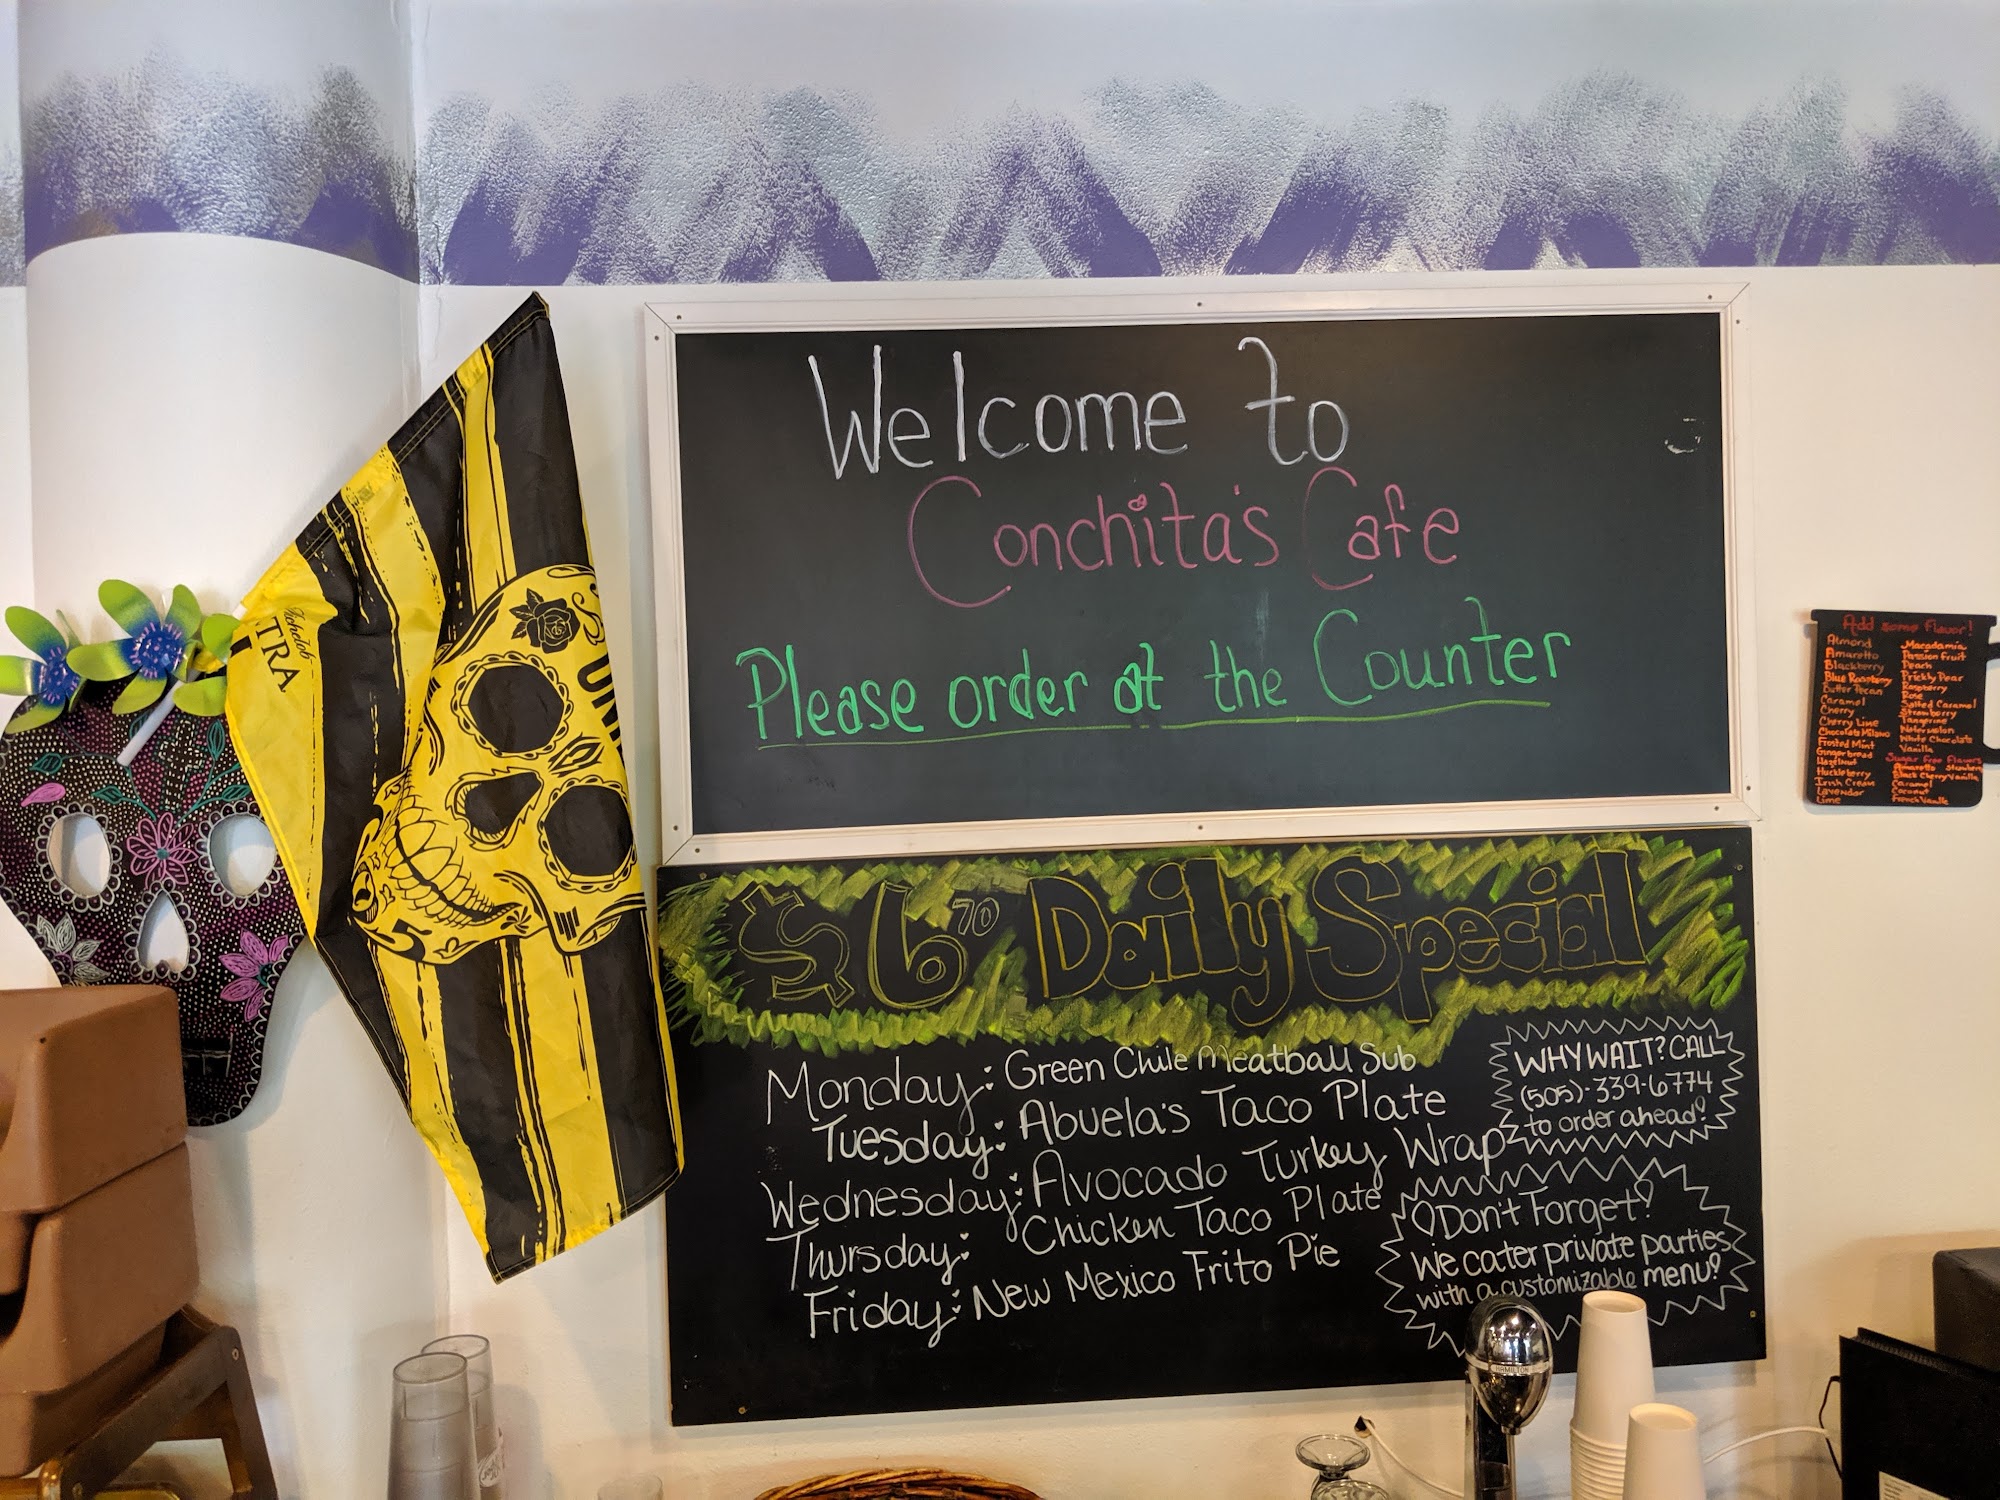 Welcome to
Conchita's Cafe
Please order at the Counter
$6.70 Daily Special
Monday: Green Chile Meatball Sub
Tuesday: Abuela's Taco Plate
Wednesday: Avocado Turkey Wrap
Thursday: Chicken Taco Plate
Friday: New Mexico Frito Pie
WHY WAIT? CALL
(505)-339-6774
to order ahead!
Don't Forget?
We cater private parties
with a customizable menu?
Add some flavor!
Almond
Amaretto
Blackberry
Blue Raspberry
Butter Pecan
Caramel
Cherry
Cherry Lime
Chocolate Milano
Frosted Mint
Gingerbread
Hazelnut
Huckleberry
Irish Cream
Lavender
Lime
Macadamia
Passion fruit
Peach
Prickly Pear
Raspberry
Rose
Salted Caramel
Strawberry
Tangerine
Watermelon
White Chocolate
Vanilla
Sugar Free Flavors
Amaretto
Black Cherry Vanilla
Caramel
Coconut
French Vanilla
TRA
5
HAMILTON